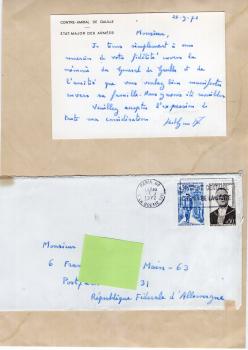 CONTRE-AMIRAL DE GAULLE
ÉTAT-MAJOR DES ARMÉES
Monsieur,
Je tiens simplement à vous
remercier de votre fidélité envers la
mémoire du Général de Gaulle et de
l'amitié que vous voulez bien manifester
envers sa famille. Nous y sommes très sensibles
Veuillez accepter l'expression de
toute ma considération.
PARIS
1972
Monsieur
6 Fran Main-63
Postfach 31
République Fédérale d'Allemagne